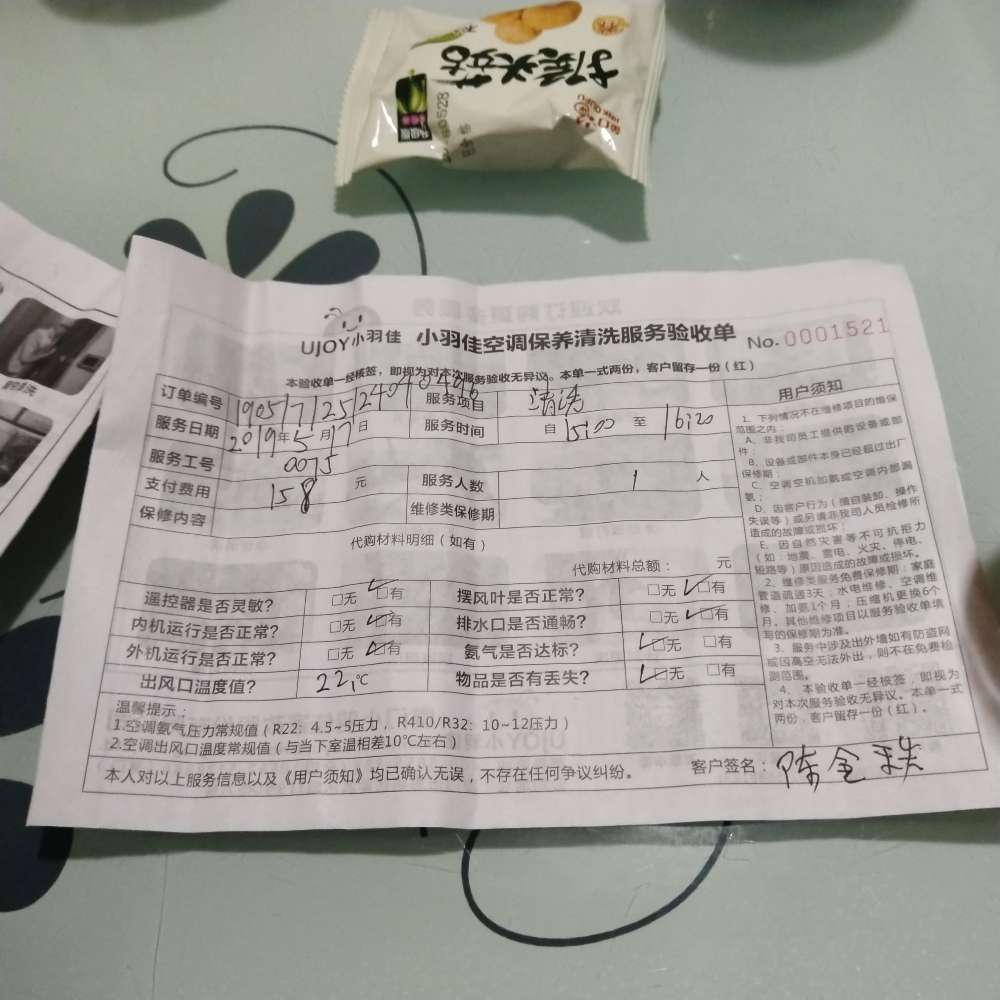 猴头菇
UJOY小羽佳 小羽佳空调保养清洗服务验收单 No.0001521
本验收单一经核签，即视为对本次服务验收无异议。本单一式两份，客户留存一份（红）
订单编号 服务项目 清洗
服务日期 2019年5月17日 服务时间 自 15:00 至 16:20
服务工号 0075
支付费用 158 元 服务人数 1 人
保修内容 维修类保修期
代购材料明细（如有）
代购材料总额： 元
遥控器是否灵敏？ □无 □有 摆风叶是否正常？ □无 □有
内机运行是否正常？ □无 □有 排水口是否通畅？ □无 □有
外机运行是否正常？ □无 □有 氨气是否达标？ □无 □有
出风口温度值？ 22.℃ 物品是否有丢失？ □无 □有
温馨提示：
1.空调氨气压力常规值（R22：4.5~5压力，R410/R32：10~12压力）
2.空调出风口温度常规值（与当下室温相差10℃左右）
本人对以上服务信息以及《用户须知》均已确认无误，不存在任何争议纠纷。 客户签名：陈金
用户须知
1、下列情况不在维修项目的维保
范围之内：
A、非我司员工提供的设备或部
件；
B、设备或部件本身已经超过出厂
保修期；
C、空调空机加氨或空调内部漏
氨；
D、因客户行为（擅自装卸、操作
失误等）或另请非我司人员检修所
造成的故障或损坏；
E、因自然灾害等不可抗拒力
（如：地震、雷电、火灾、停电、
短路等）原因造成的故障或损坏。
2、维修类服务免费保修期：家庭
管道疏通3天；水电维修、空调维
修、加氨1个月；压缩机更换6个
月。其他维修项目以服务验收单填
写的保修期为准。
3、服务中涉及出外墙如有防盗网
或因高空无法外出，则不在免费检
测范围。
4、本验收单一经核签，即视为
对本次服务验收无异议。本单一式
两份，客户留存一份（红）。